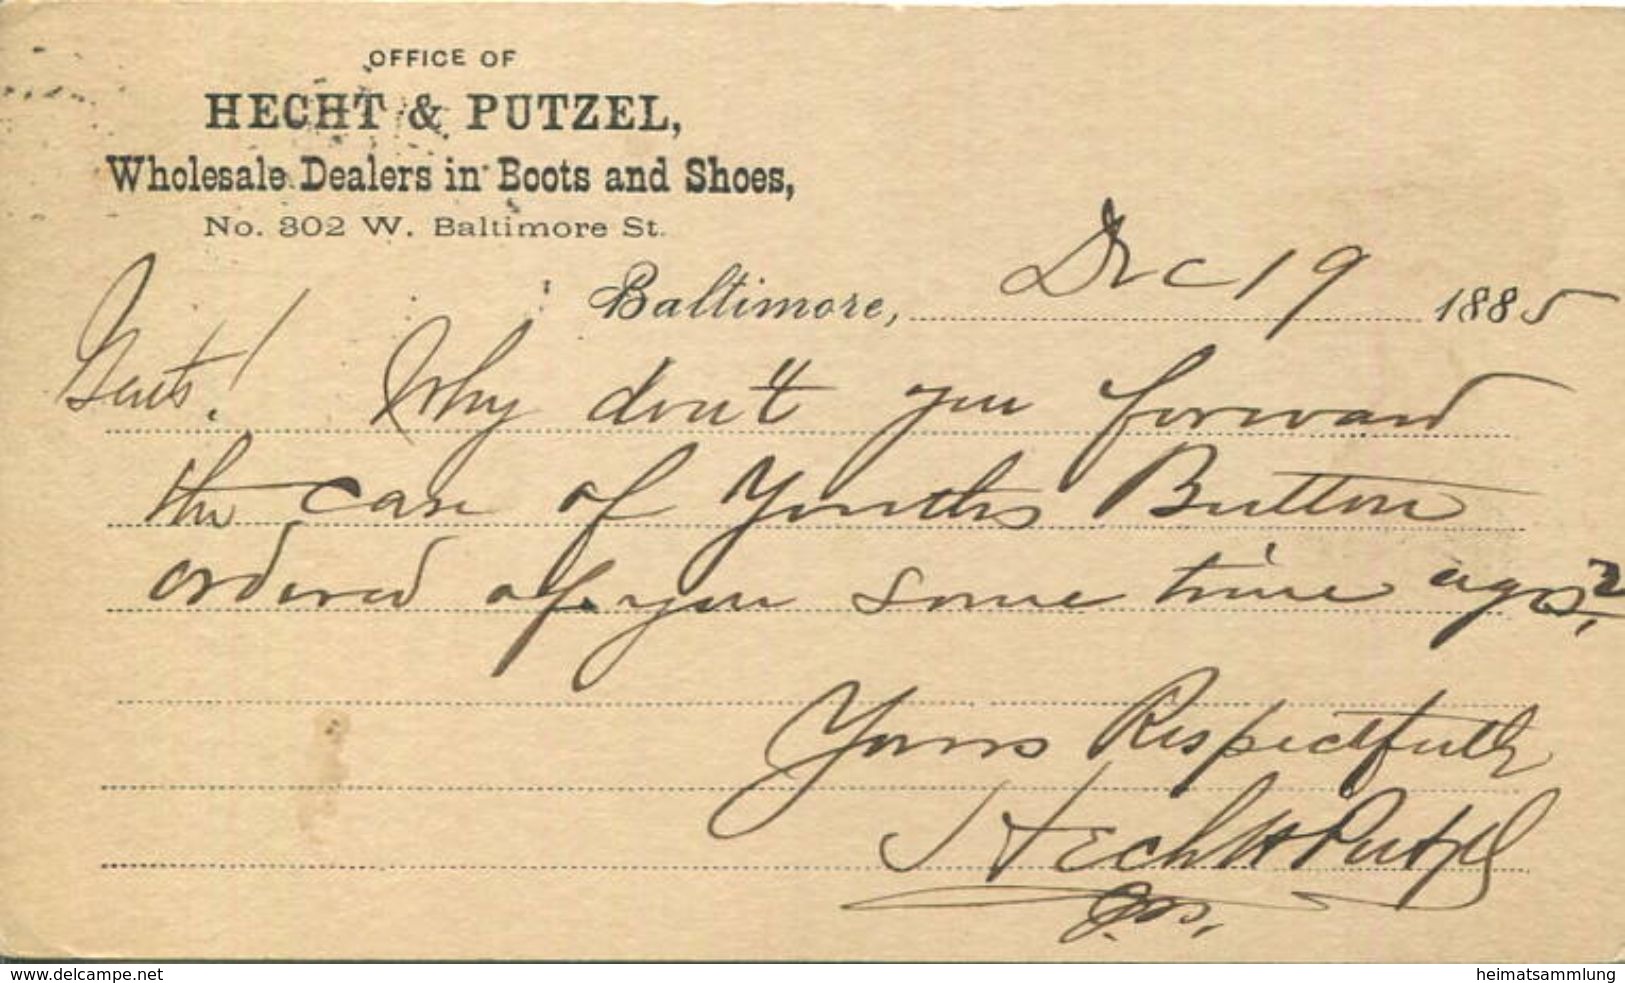 OFFICE OF
HECHT & PUTZEL,
Wholesale Dealers in Boots and Shoes,
No. 302 W. Baltimore St.
Baltimore, Dec 19 1885
Gents! Why don't you forward
the case of Youths Button
ordered of you some time ago?
Yours Respectfully
Hecht & Putzel
www.delcampe.net
heimatsammlung